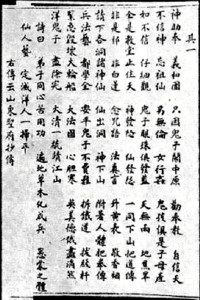 其一
神助拳 義和團 只因鬼子鬧中原 勸奉教 自信天
不信神 忘祖仙 男無倫 女行姦 鬼孩俱是子母產
如不信 仔細觀 鬼子眼珠俱發藍 天無雨 地焦旱
全是教堂止住天 神發怒 仙發怨 一同下山把道傳
非是邪 非白蓮 念咒語 法真言 升黃表 敬香烟
請下各洞諸神仙 仙出洞 神下山 附著人體把拳傳
兵法藝 都學全 要平鬼子不費難 拆鐵道 拔線杆
緊急毀壞大輪船 大法國 心膽寒 英美德俄盡消然
洋鬼子 盡除完 大清一統靖江山
詩曰 弟子同心苦用功 遍地草木化成兵 愚蒙之體
仙人藝 定滅洋人一掃平
右傳云山東聖府抄傳